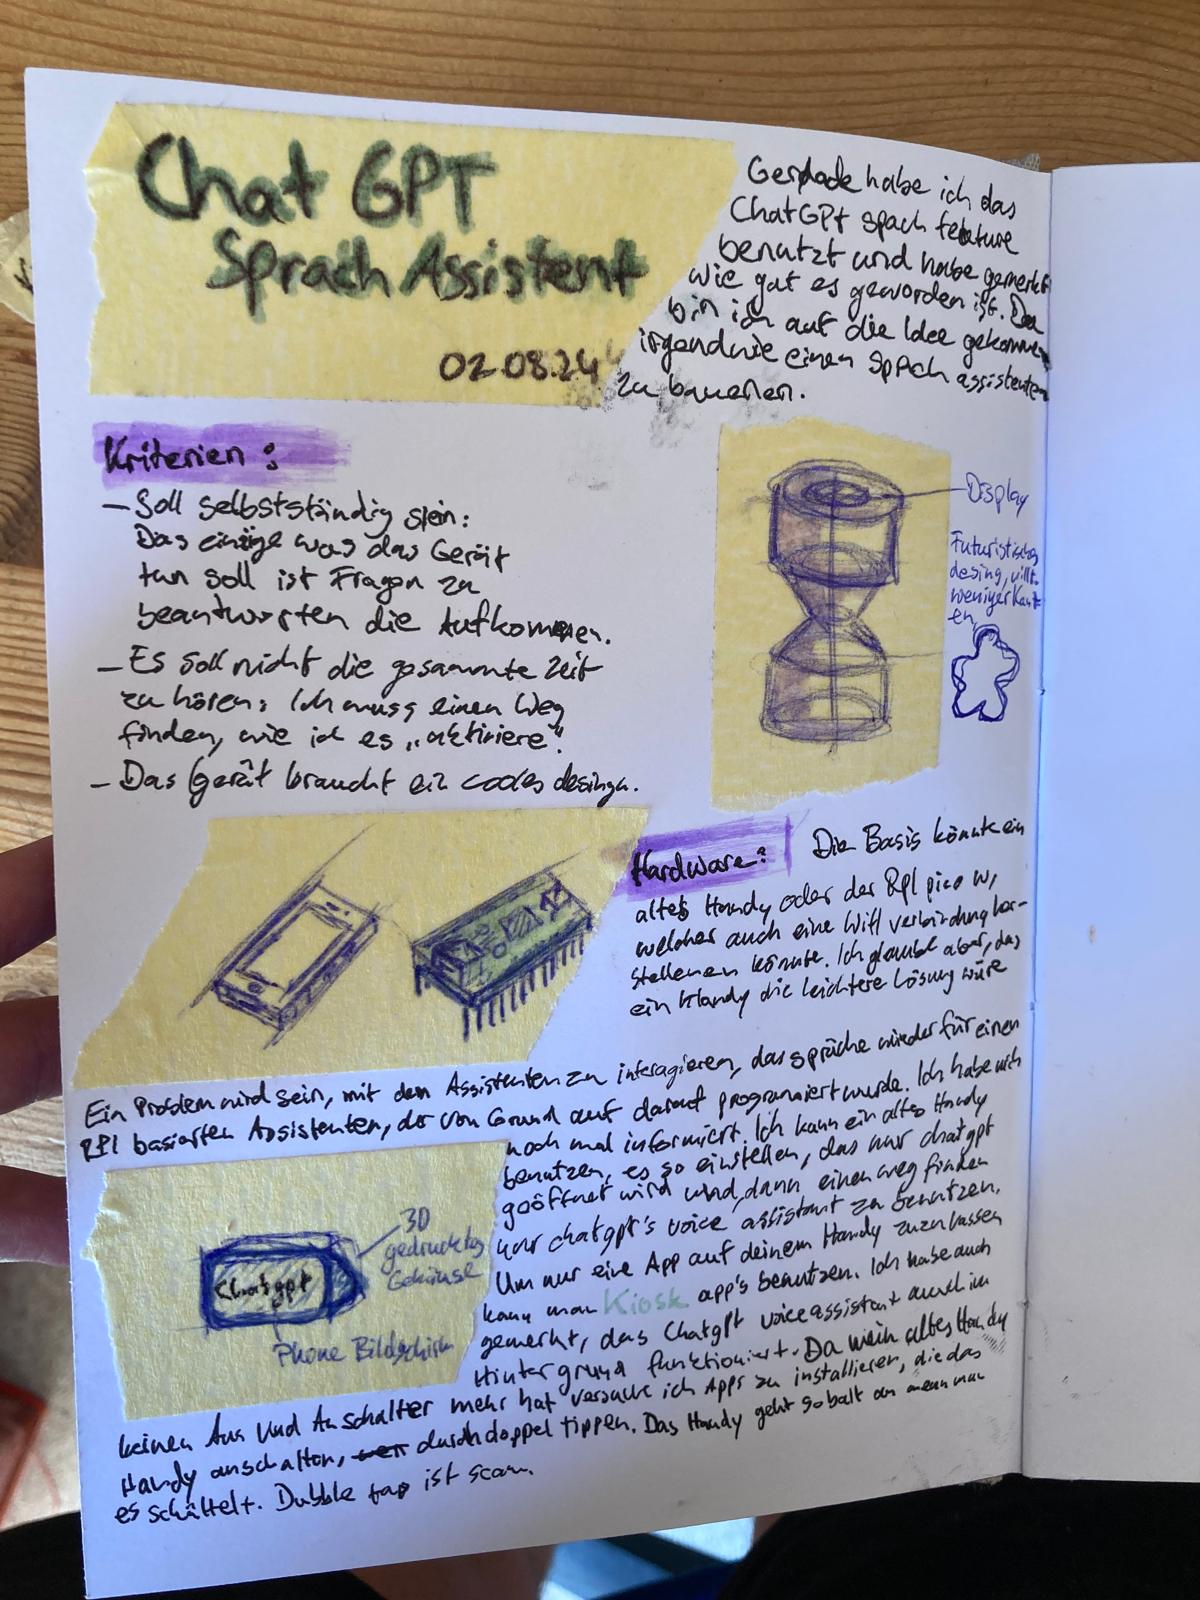 Chat GPT
Sprach Assistent
02.08.24
Gerade habe ich das
ChatGPt spach feature
benutzt und habe gemerkt
wie gut es geworden ist. Da
bin ich auf die Idee gekommen
irgendwie einen Sprach assistenten
zu bauenen.
Kriterien:
- Soll selbstständig sein:
Das einzige was das Gerät
tun soll ist Fragen zu
beantworten die Aufkommen.
- Es soll nicht die gesammte Zeit
zu hören: Ich muss einen Weg
finden, wie ich es „aktiviere".
- Das Gerät braucht ein cooles desingn.
Display
Futuristisches
desing, villt.
weniger Kant-
en
Hardware: Die Basis könnte ein
altes Handy oder der RPI pico W,
welcher auch eine Wifi verbindung her-
stellenen könnte. Ich glaube aber, das
ein Handy die leichtere Lösung wäre
Ein Problem wird sein, mit dem Assistenten zu interagieren, das spräche wieder für einen
RPI basierten Assistenten, der von Grund auf darauf programiert wurde. Ich habe mich
noch mal informiert. Ich kann ein altes Handy
benutzen, es so einstellen, das nur chatgpt
geöffnet wird und dann einen weg finden
nur chatgpt's voice assistant zu benutzen.
Um nur eine App auf deinem Handy zuzulassen
kann man Kiosk app's benutzen. Ich habe auch
gemerkt, das Chatgpt voice assistant auch im
Hintergrund funktioniert. Da mein altes Handy
keinen Aus und Anschalter mehr hat versuche ich Apps zu installieren, die das
Handy anschalten, durch doppel tippen. Das Handy geht sobalt an wenn man
es schüttelt. Dubble tap ist scam.
3D
gedrucktes
Gehäuse
Chatgpt
Phone Bildschirm